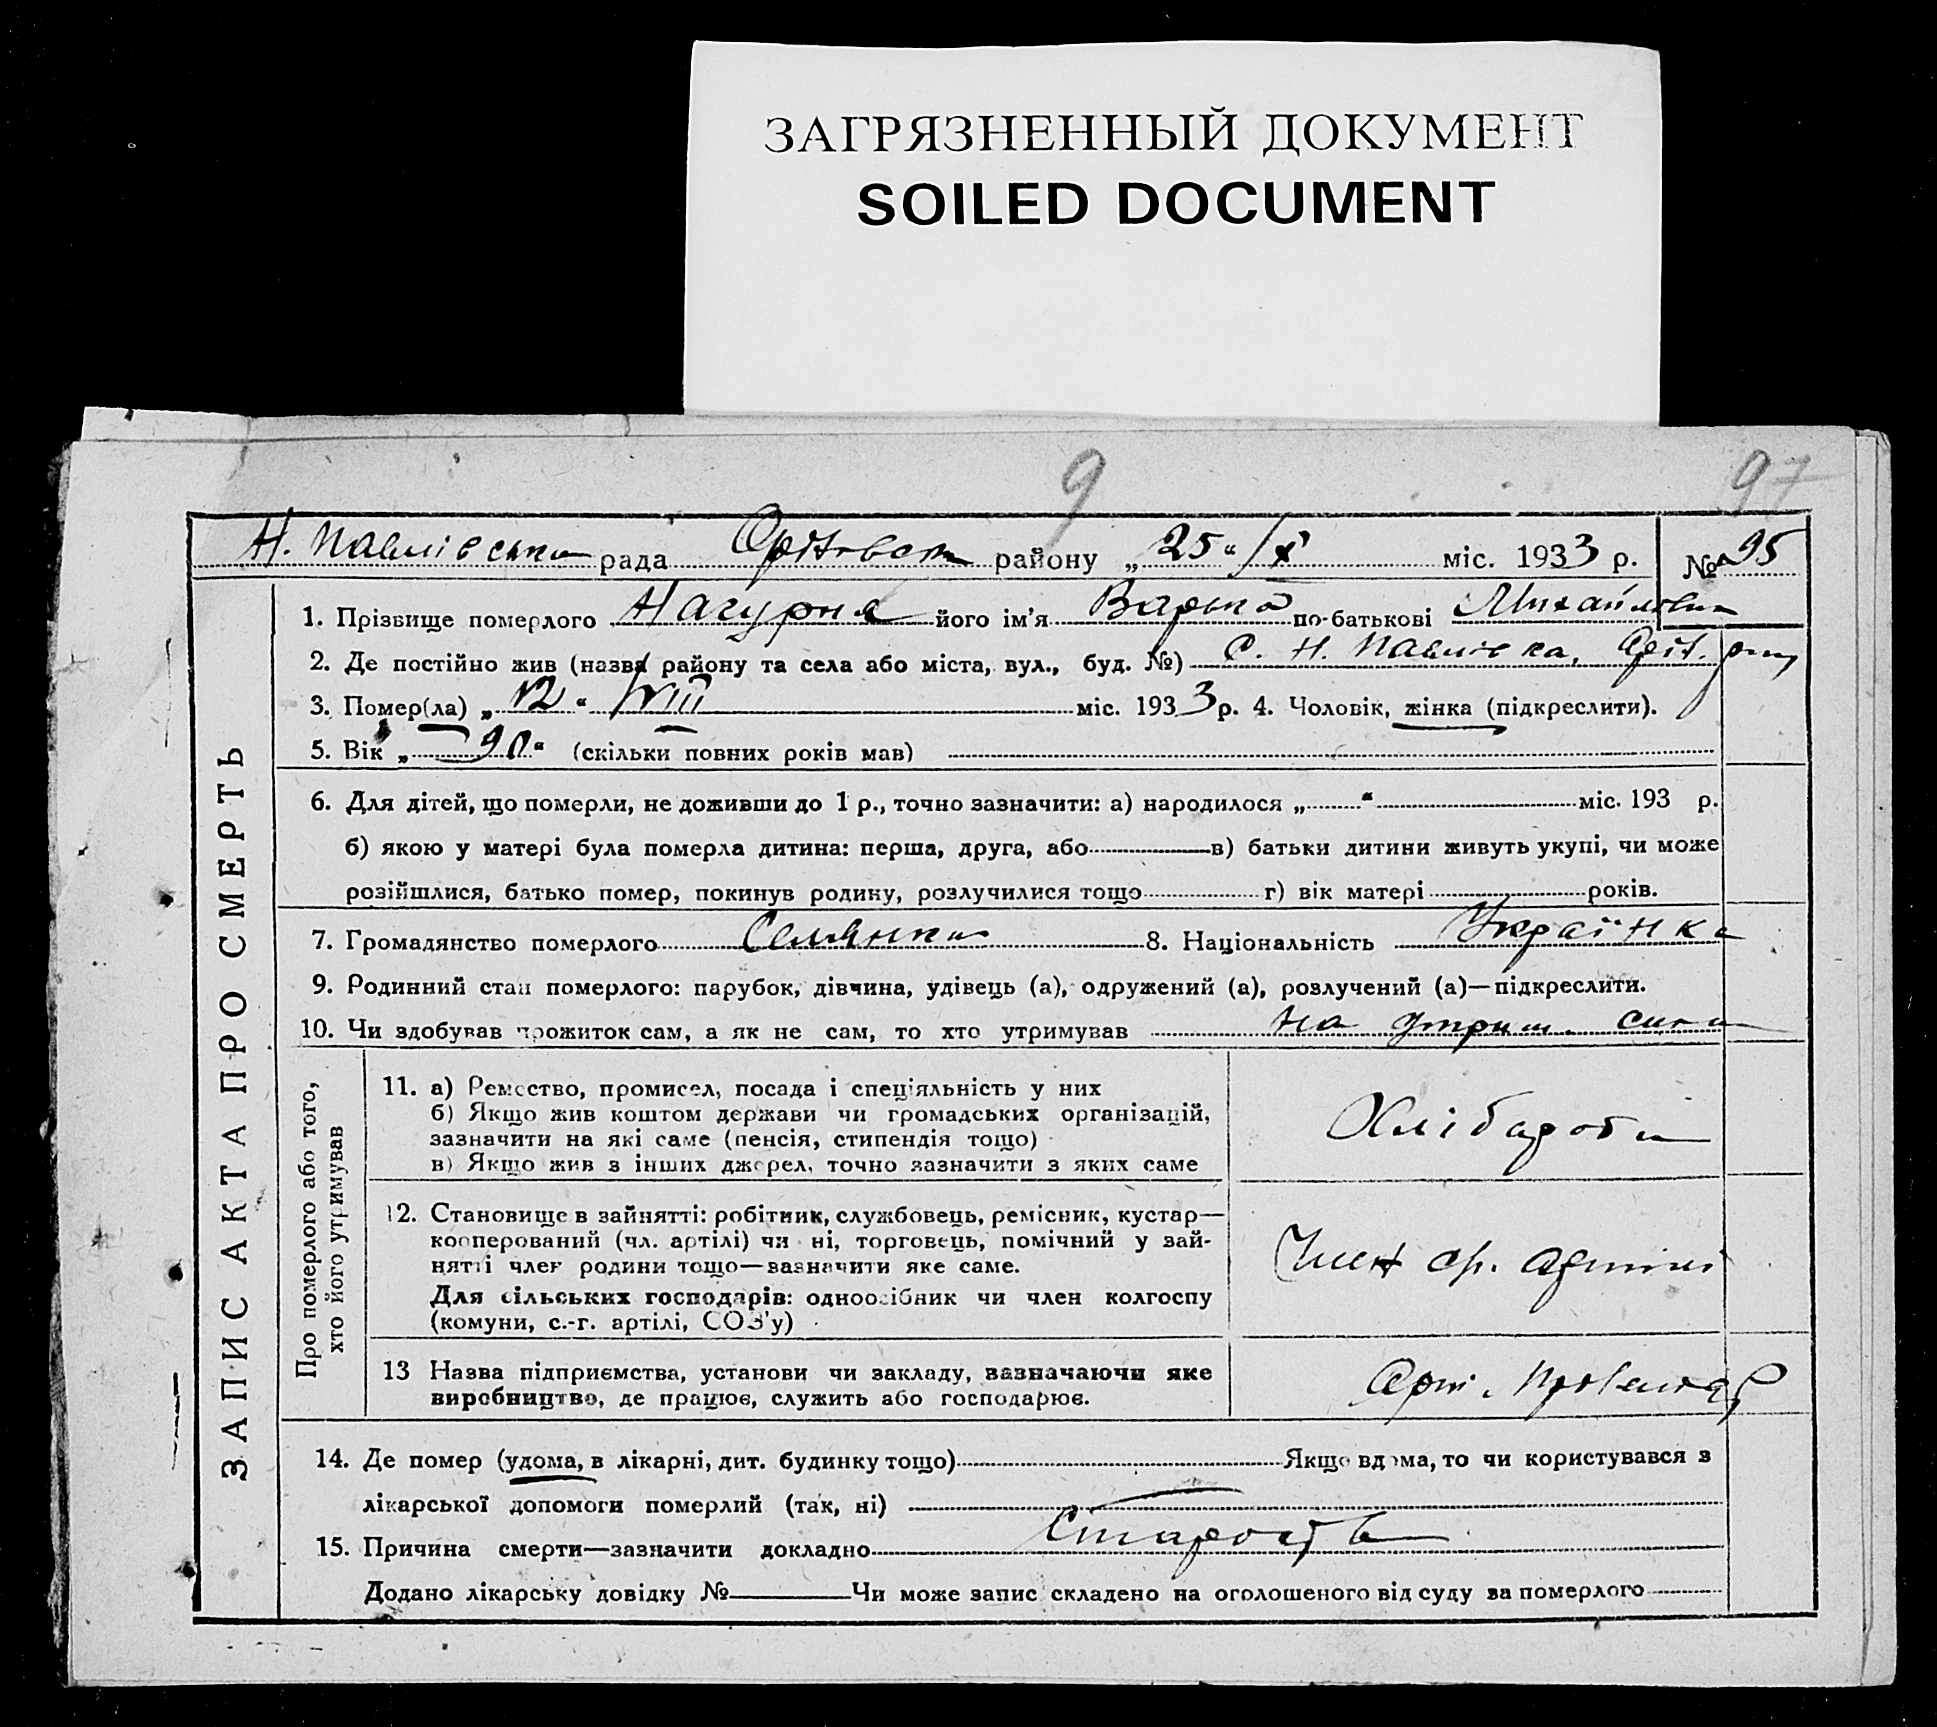 ЗАГРЯЗНЕННЫЙ ДОКУМЕНТ
SOILED DOCUMENT
9
97
Н. Павлівська рада району „25“ /X міс. 1933 р. № 95
ЗАПИС АКТА ПРО СМЕРТЬ
1. Прізвище померлого Нагурня його ім'я Варька по-батькові Михайлівна
2. Де постійно жив (назва району та села або міста, вул., буд. №) с. Н. Павлівка, Оріх. р-ну
3. Помер(ла) „12“ /VIII міс. 1933 р. 4. Чоловік, жінка (підкреслити).
5. Вік „90“ (скільки повних років мав)
6. Для дітей, що померли, не доживши до 1 р., точно зазначити: а) народилося „ “ міс. 193 р.
б) якою у матері була померла дитина: перша, друга, або в) батьки дитини живуть укупі, чи може
розійшлися, батько помер, покинув родину, розлучилися тощо г) вік матері років.
7. Громадянство померлого Селянка 8. Національність Українка
9. Родинний стан померлого: парубок, дівчина, удівець (а), одружений (а), розлучений (а)—підкреслити.
10. Чи здобував прожиток сам, а як не сам, то хто утримував на утрим. сина
Про померлого або того,
хто його утримував
11. а) Ремество, промисел, посада і спеціяльність у них
б) Якщо жив коштом держави чи громадських організацій,
зазначити на які саме (пенсія, стипендія тощо)
в) Якщо жив з інших джерел, точно зазначити з яких саме
Хлібароби
12. Становище в зайнятті: робітник, службовець, ремісник, кустар—
кооперований (чл. артілі) чи ні, торговець, помічний у зай-
нятті член родини тощо—зазначити яке саме.
Для сільських господарів: одноосібник чи член колгоспу
(комуни, с.-г. артілі, СОЗ'у)
Член с/г. артілі
13 Назва підприємства, установи чи закладу, зазначаючи яке
виробництво, де працює, служить або господарює.
Арт. Пролетар
14. Де помер (удома, в лікарні, дит. будинку тощо) Якщо вдома, то чи користувався з
лікарської допомоги померлий (так, ні)
15. Причина смерти—зазначити докладно Старость
Додано лікарську довідку № Чи може запис складено на оголошеного від суду за померлого